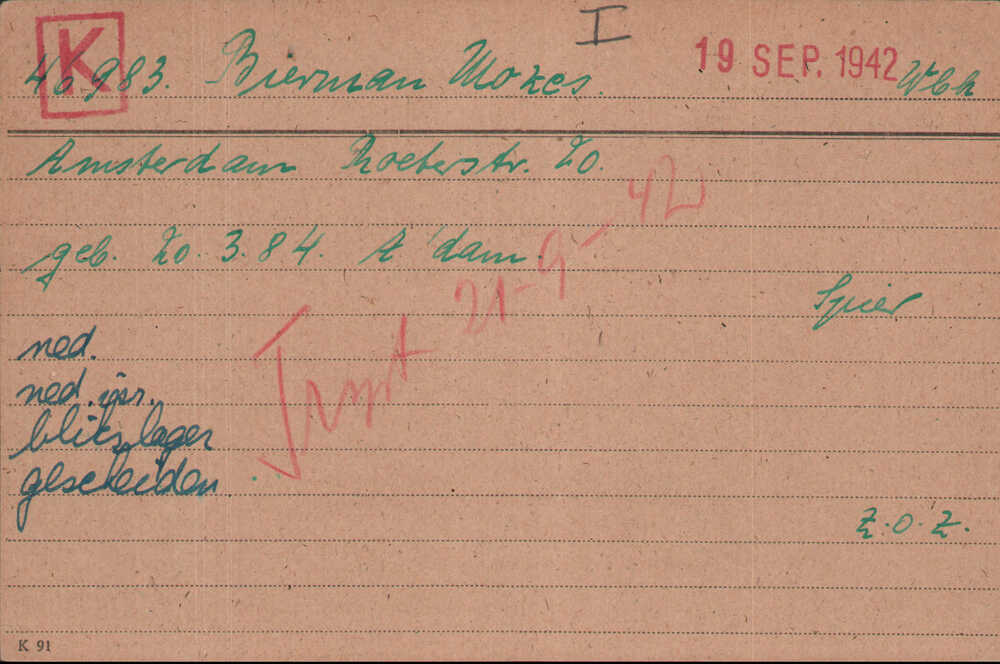 I
K
46983. Bierman Mozes. 19 SEP. 1942 Wbk
Amsterdam Roeterstr. 20.
geb. 20.3.84. A'dam.
Trspt 21-9-42
Spier
ned.
ned. isr.
blikslager
gescheiden
Z.O.Z.
K 91